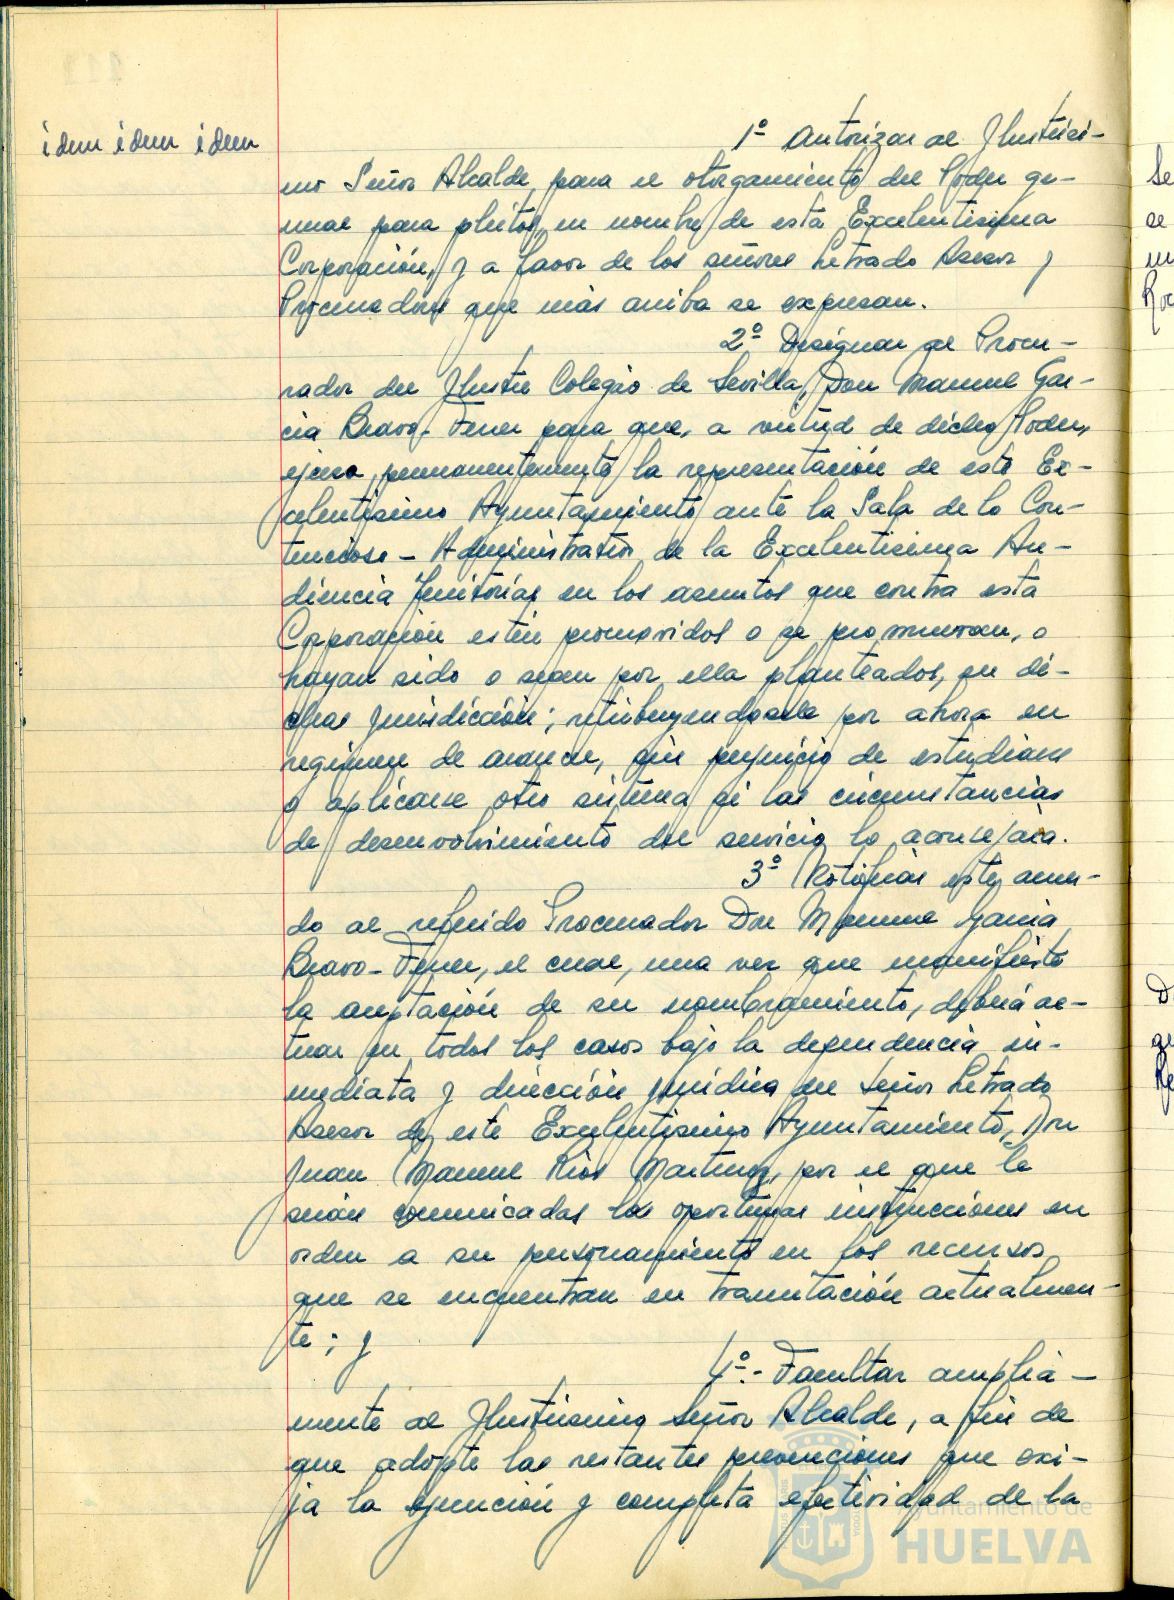 idem idem idem
1º Autorizar al Ilustrísi-
mo Señor Alcalde, para el otorgamiento del Poder ge-
neral para pleitos, en nombre de esta Excelentísima
Corporación, y a favor de los señores Letrado Asesor y
Procuradores que más arriba se expresan.
2º Designar al Procu-
rador del Ilustre Colegio de Sevilla, Don Manuel Gar-
cia Bravo-Ferrer para que, a virtud de dicho Poder,
ejerza, permanentemente, la representación de este Ex-
celentísimo Ayuntamiento ante la Sala de lo Con-
tencioso-Administrativo de la Excelentísima Au-
diencia Territorial en los asuntos que contra esta
Corporación estén promovidos o se promuevan, o
hayan sido o sean por ella planteados, en di-
chas jurisdicción; retribuyendosele por ahora en
regimen de arancel, sin perjuicio de estudiarse
o aplicarse otro sistema si las circunstancias
de desenvolvimiento del servicio lo aconsejara.
3º Notificar este acuer-
do al referido Procurador Don Manuel Garcia
Bravo-Ferrer, el cual, una vez que manifieste
la aceptación de su nombramiento, deberá ac-
tuar en todos los casos bajo la dependencia in-
mediata y dirección jurídica del Señor Letrado
Asesor de este Excelentísimo Ayuntamiento, Don
Juan Manuel Rios Martinez, por el que le
serán comunicadas las oportunas instrucciones en
orden a su personamiento en los recursos
que se encuentran en tramitación actualmen-
te; y
4º.- Facultar amplia-
mente al Ilustrísimo Señor Alcalde, a fin de
que adopte las restantes prevenciones que exi-
ja la ejecución y completa efectividad de la
Ayuntamiento de
HUELVA